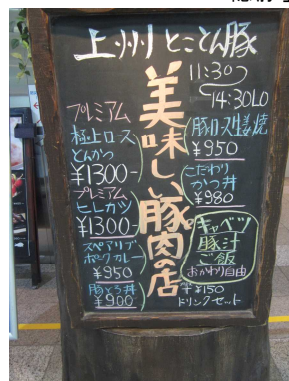 上州とことん豚
11:30〜
14:30LO
美味しい豚肉の店
プレミアム
極上ロース
とんかつ
¥1300-
プレミアム
ヒレカツ
¥1300-
スペアリブ
ポークカレー
¥950
豚とろ丼
¥900
豚ロース生姜焼
¥950
こだわり
かつ丼
¥980
キャベツ
豚汁
ご飯
おかわり自由
¥150
ドリンクセット